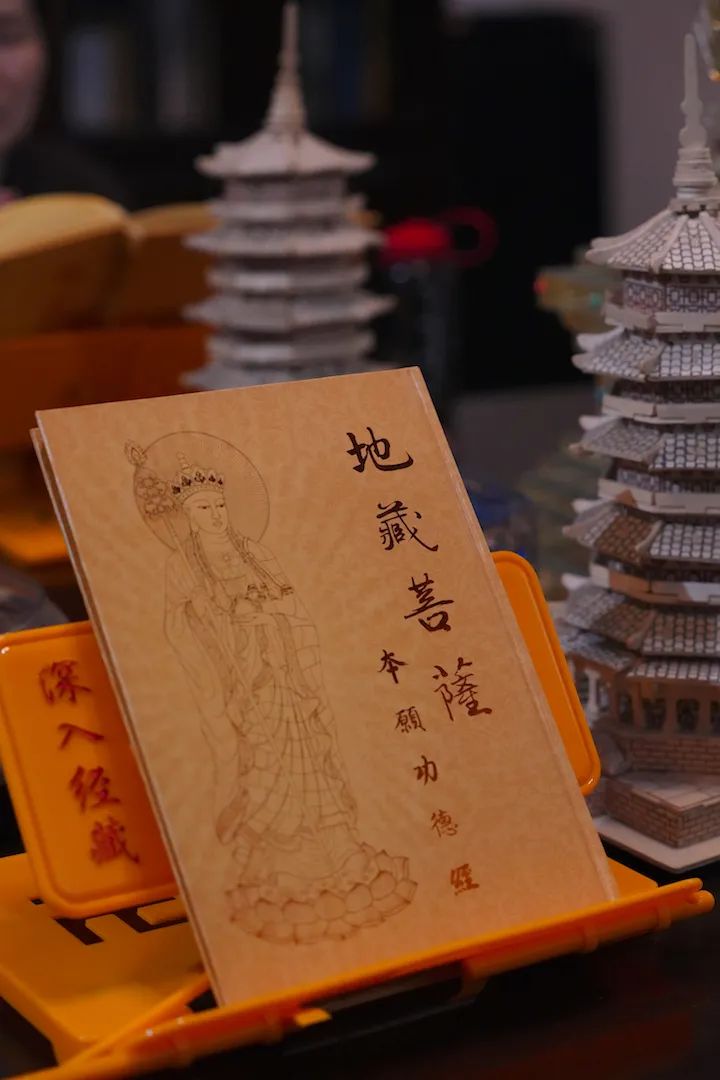 地藏菩薩
本願功德經
深入经藏